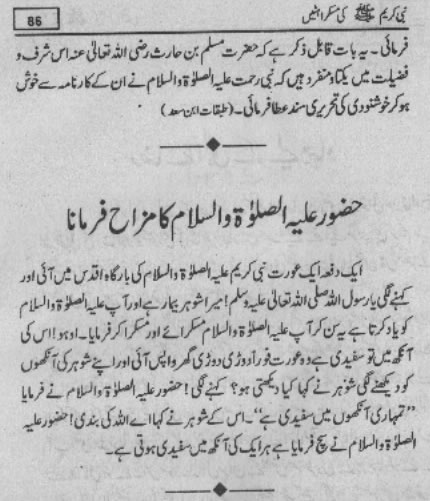 نبی کریم ﷺ کی مسکراہٹیں
86
فرمائی۔ یہ بات قابل ذکر ہے کہ حضرت مسلم بن حارث رضی اللہ تعالیٰ عنہ اس شرف و
فضیلت میں یکتا و منفرد ہیں کہ نبی رحمت علیہ الصلوٰۃ والسلام نے ان کے کارنامہ سے خوش
ہو کر خوشنودی کی تحریری سند عطا فرمائی۔ (طبقات ابن سعد)
حضور علیہ الصلوٰۃ والسلام کا مزاح فرمانا
ایک دفعہ ایک عورت نبی کریم علیہ الصلوٰۃ والسلام کی بارگاہ اقدس میں آئی اور
کہنے لگی یا رسول اللہ صلی اللہ تعالیٰ علیہ وسلم! میرا شوہر بیمار ہے اور آپ علیہ الصلوٰۃ والسلام
کو یاد کرتا ہے یہ سن کر آپ علیہ الصلوٰۃ والسلام مسکرائے اور مسکرا کر فرمایا۔ اوہو! اس کی
آنکھ میں تو سفیدی ہے وہ عورت فوراً دوڑی دوڑی گھر واپس آئی اور اپنے شوہر کی آنکھوں
کو دیکھنے لگی شوہر نے کہا کیا دیکھتی ہو؟ کہنے لگی! حضور علیہ الصلوٰۃ والسلام نے فرمایا
”تمہاری آنکھوں میں سفیدی ہے“۔ اس کے شوہر نے کہا اے اللہ کی بندی! حضور علیہ
الصلوٰۃ والسلام نے سچ فرمایا ہے ہر ایک کی آنکھ میں سفیدی ہوتی ہے۔